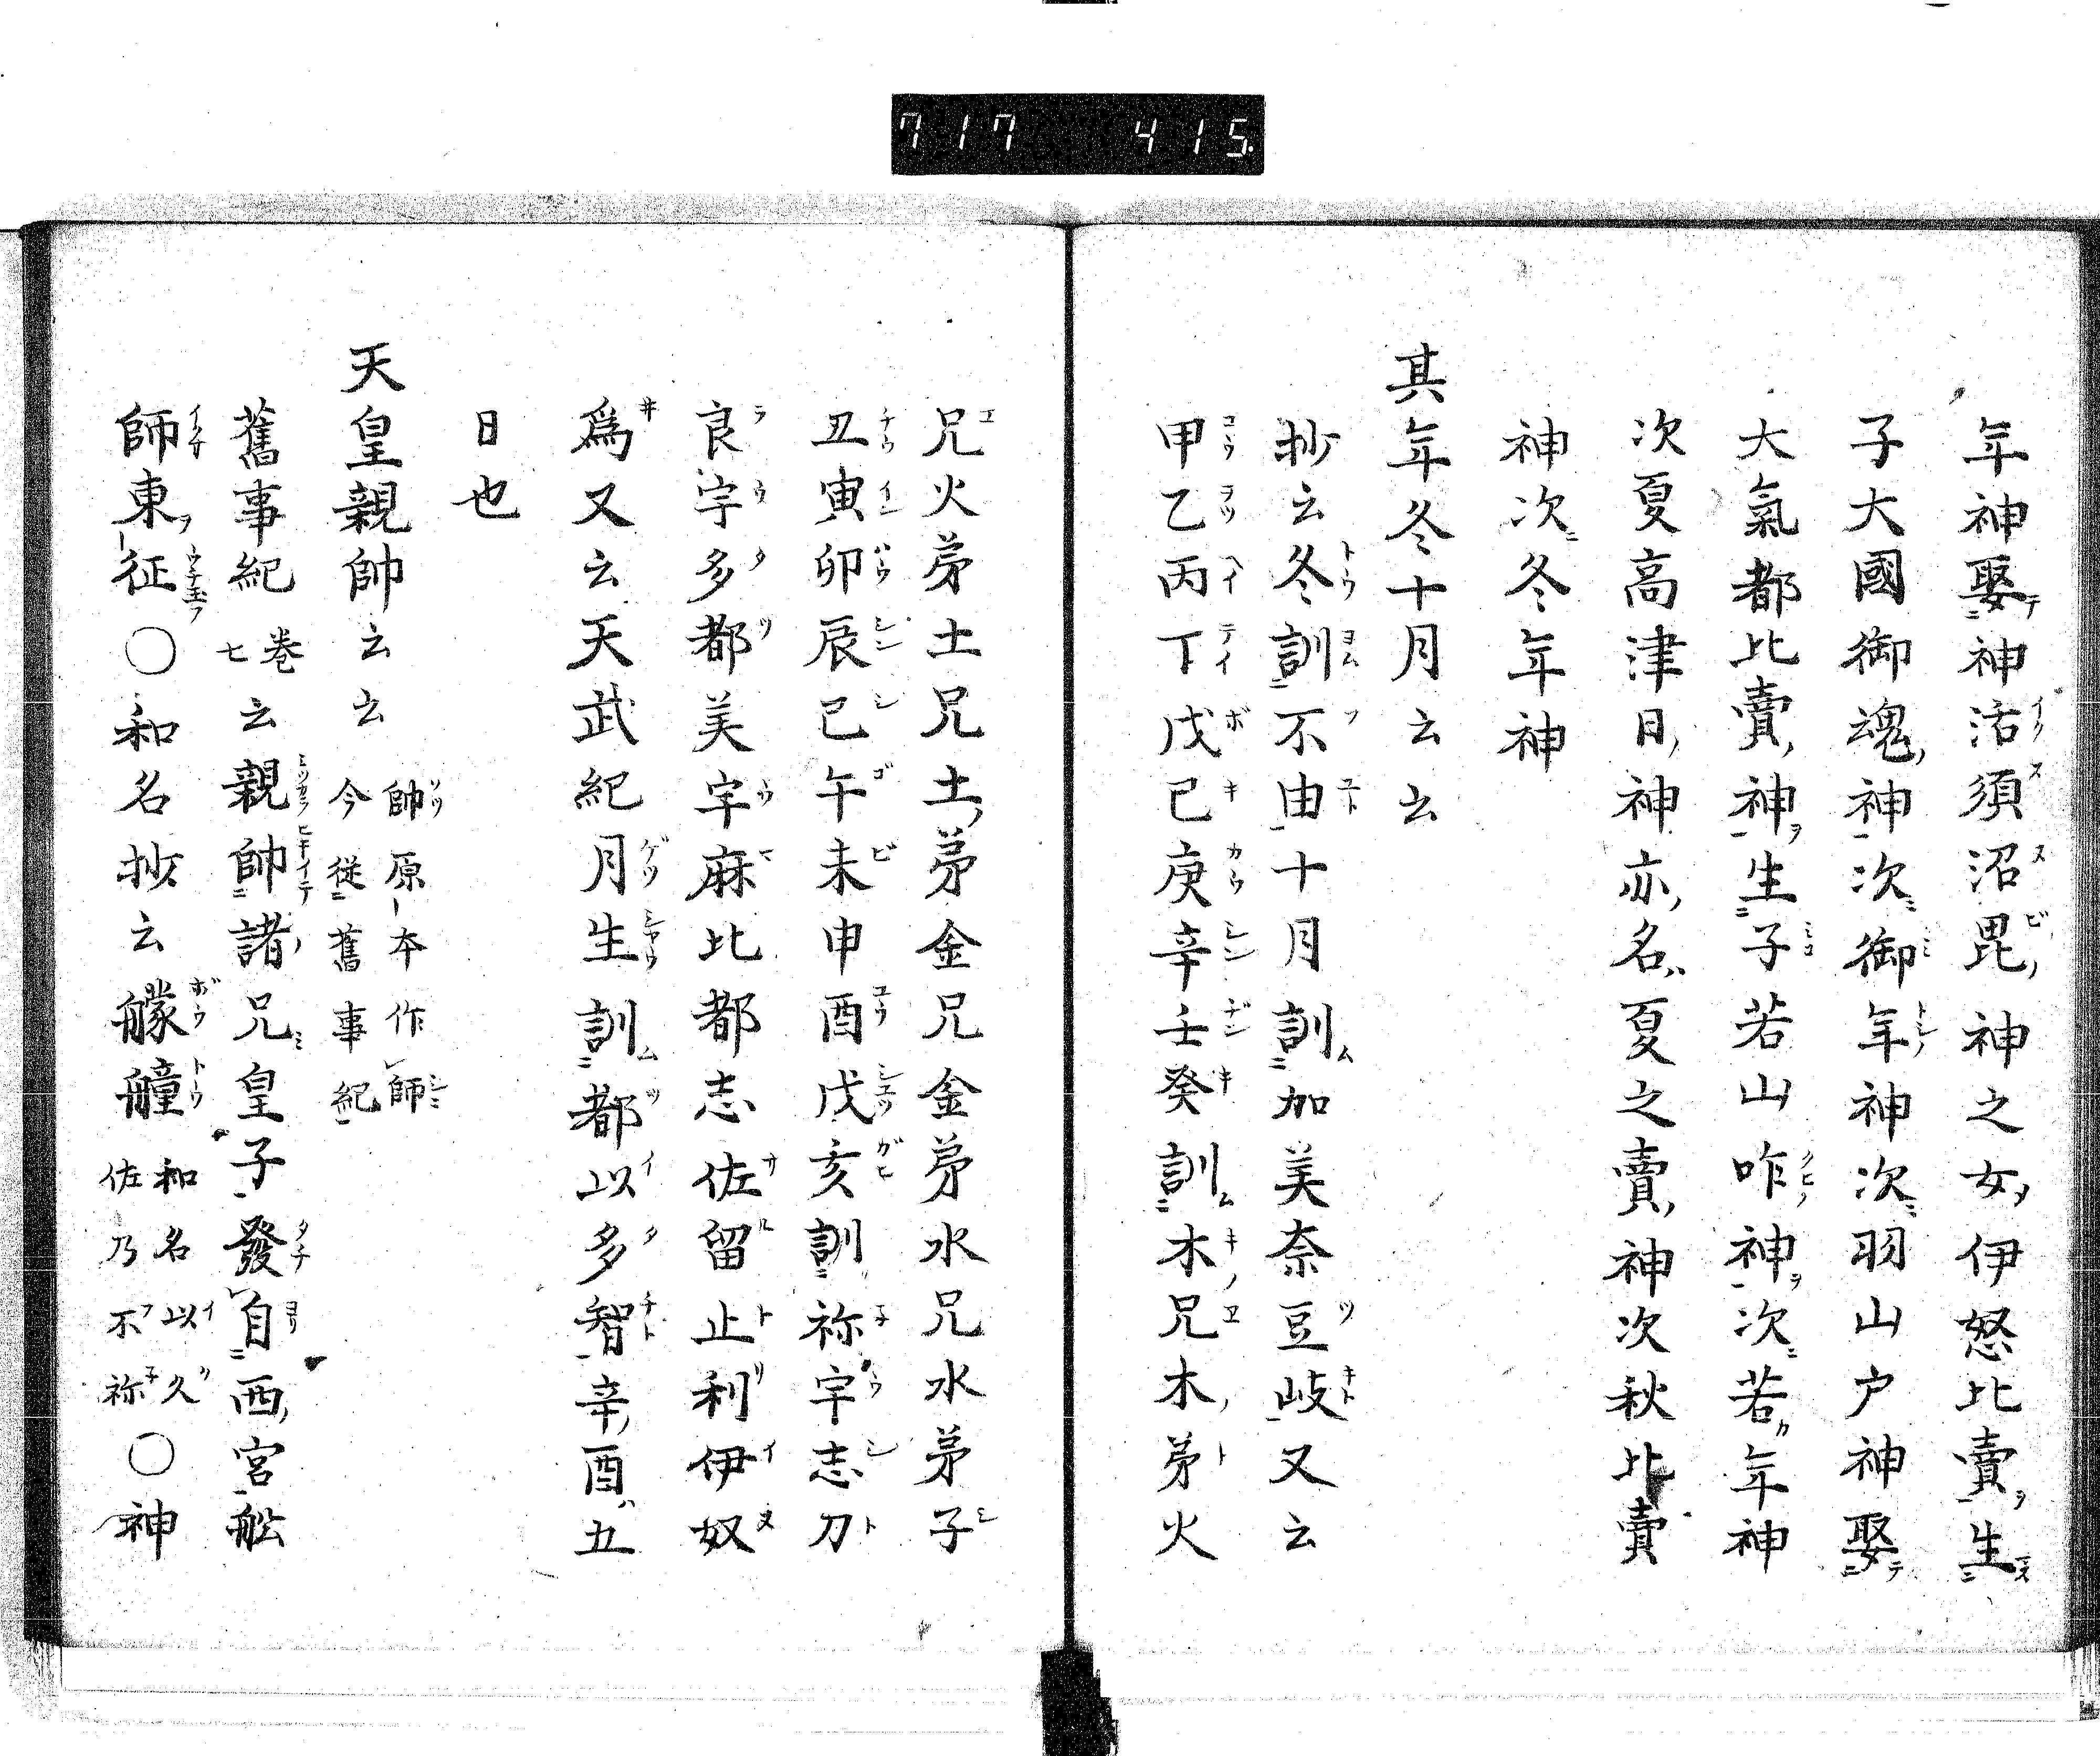 717 415
年神娶神活須沼毘神之女伊怒比賣生
子大國御魂神次御年神次羽山户神娶
大氣都比賣神生子若山咋神次若年神
次夏高津日神亦名夏之賣神次秋比賣
神次冬年神
其年冬十月云云
抄云冬訓不由十月訓加美奈豆岐又云
甲乙丙丁戊己庚辛壬癸訓木兄木弟火
兄火弟土兄土弟金兄金弟水兄水弟子
丑寅卯辰巳午未申酉戌亥訓祢宇志刀
良宇多都美宇麻比都志佐留止利伊奴
爲又云天武紀月生訓都以多智辛酉五
日也
天皇親帥云云 帥原本作師
今從舊事紀
舊事紀 卷七 云親帥諸兄皇子發自西宮舩
師東征〇和名抄云艨艟 和名以久
佐乃不祢 〇神